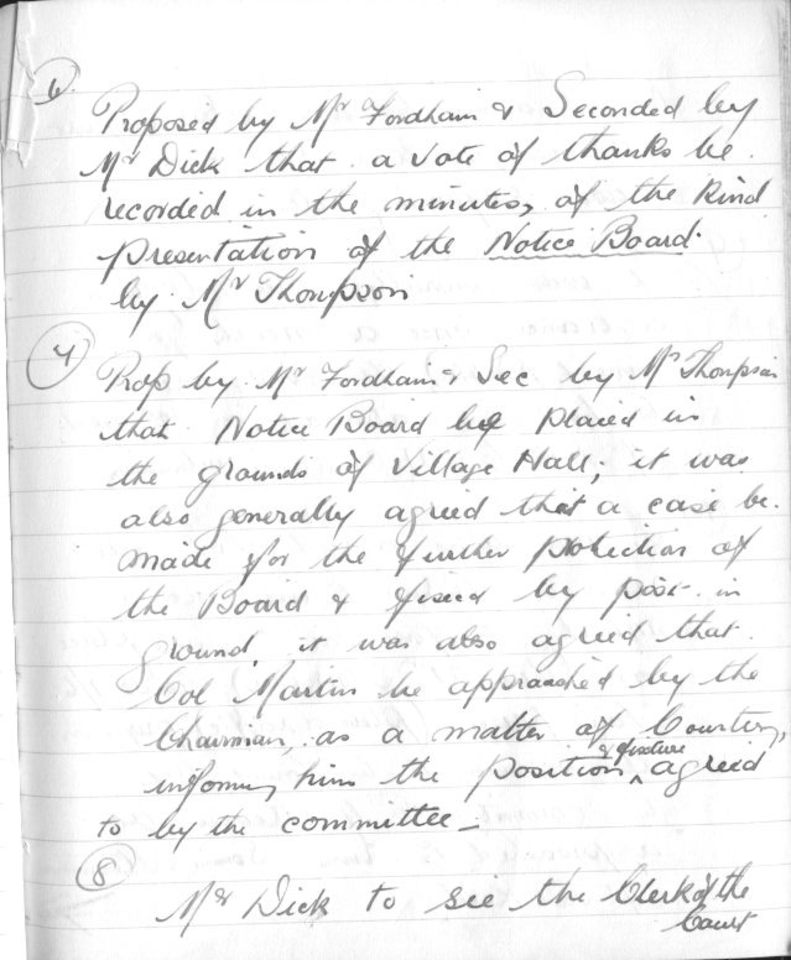 6
Proposed by Mr Fordham & Seconded by
Mr Dick that a vote of thanks be
recorded in the minutes, of the kind
presentation of the Notice Board
by Mr Thompson
7
Prop by Mr Fordham & Sec by Mr Thompson
that Notice Board be placed in
the grounds of Village Hall; it was
also generally agreed that a case be
made for the further protection of
the Board & fixed by post in
ground, it was also agreed that
Col Martin be approached by the
Chairman, as a matter of Courtesy,
informing him the position & fixture agreed
to by the committee –
8
Mr Dick to see the Clerk of the
Court